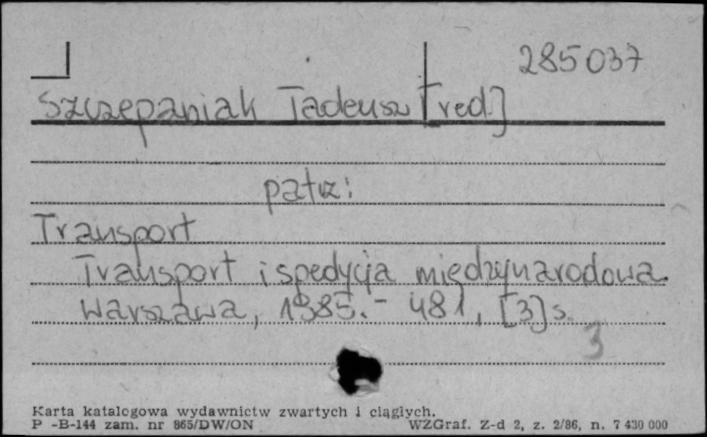 285037
Szczepaniak Tadeusz [red.]
patrz:
Transport
Transport i spedycja międzynarodowa.
Warszawa, 1985.- 481, [3] s.
3
Karta katalogowa wydawnictw zwartych i ciągłych.
P -B-144 zam. nr 865/DW/ON WZGraf. Z-d 2, z. 2/86, n. 7 430 000